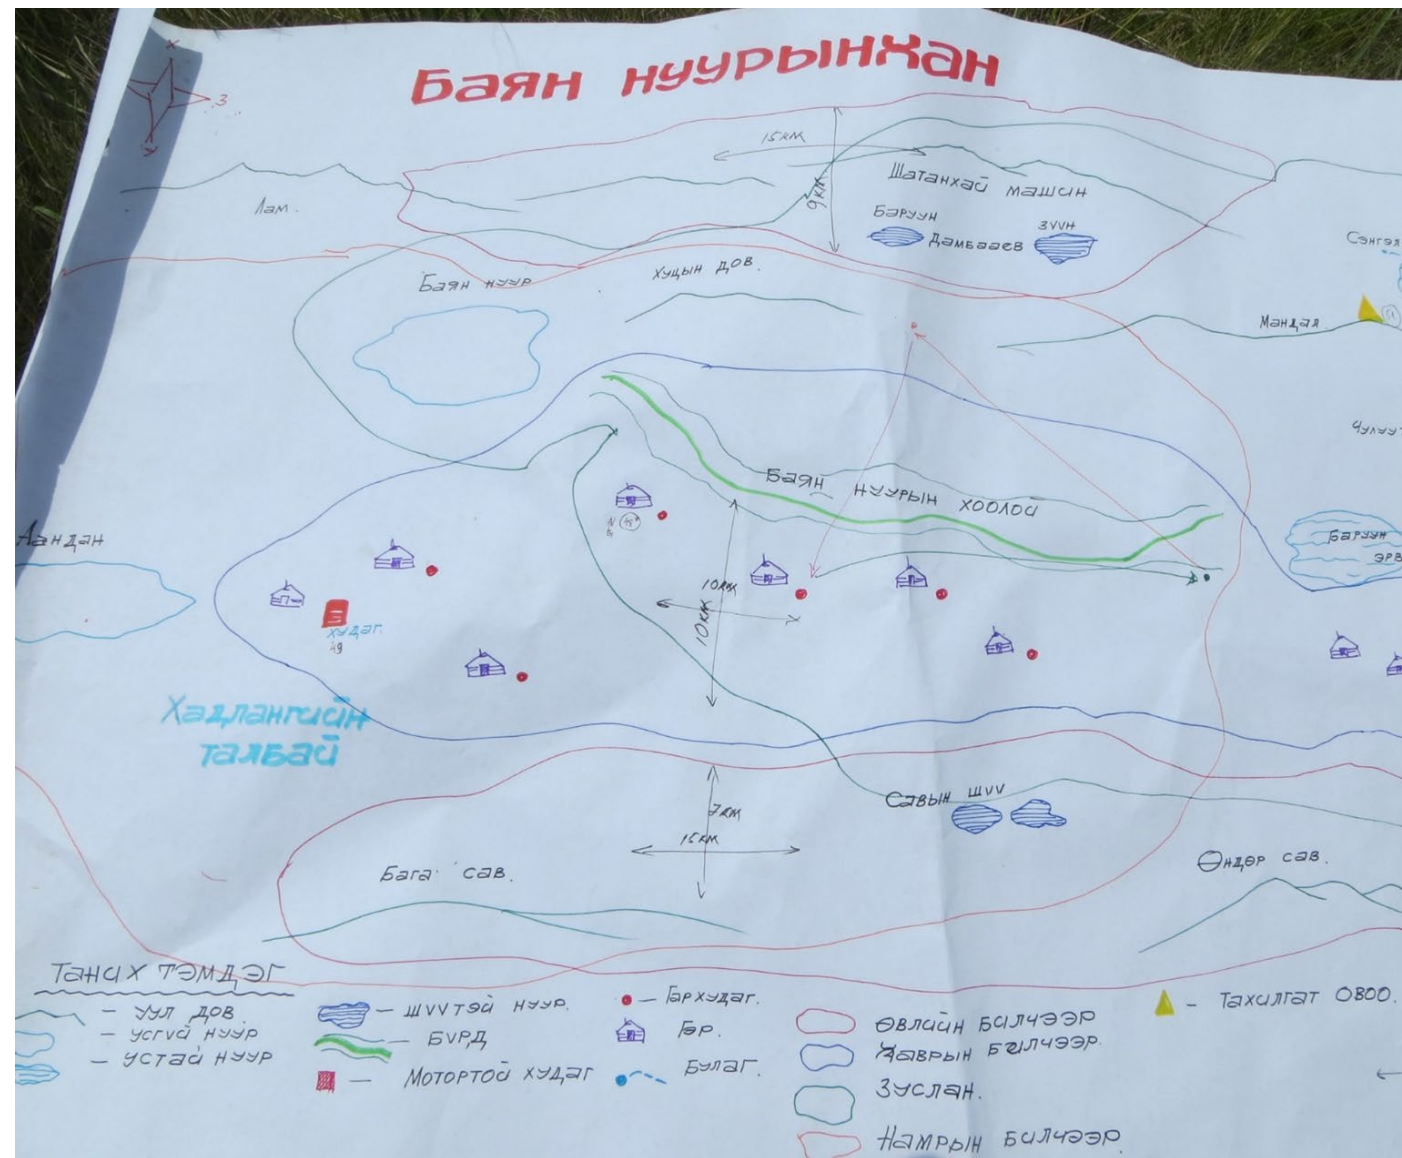 Баян нуурынхан
З
15км
9км
Шатанхай машин
Баруун
Дамбаев
зүүн
Лам.
Сэнгэл
Баян нуур
Хуцын дов.
Мандал
Чулуут
Баян нуурын хоолой
Аандан
Баруун
эрв
10км
10км
худаг.
Хадлангийн
талбай
Савын шүү
7км
15км
Бага сав.
Өндөр сав.
Таних тэмдэг
– уул дов.
– усгүй нуур
– устай нуур
– шүүтэй нуур.
– Бүрд
– Мотортой худаг
– Гар худаг.
Гэр.
Булаг.
Өвлийн билчээр
Хаврын билчээр.
Зуслан.
Намрын билчээр.
– Тахилгат овоо.